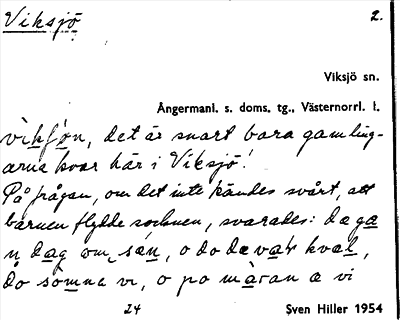 Viksjö 2.
Viksjö sn.
Ångermanl. s. doms. tg., Västernorrl. l.
vìkʃøn, det är snart bara gamling-
arna kvar här i Viksjö!
På frågan, om det inte kändes svårt, att
barnen flydde socknen, svarades: de ga
n dag om sæn, o do de var kvæl,
do somna vi, o po màran a vi
24 Sven Hiller 1954